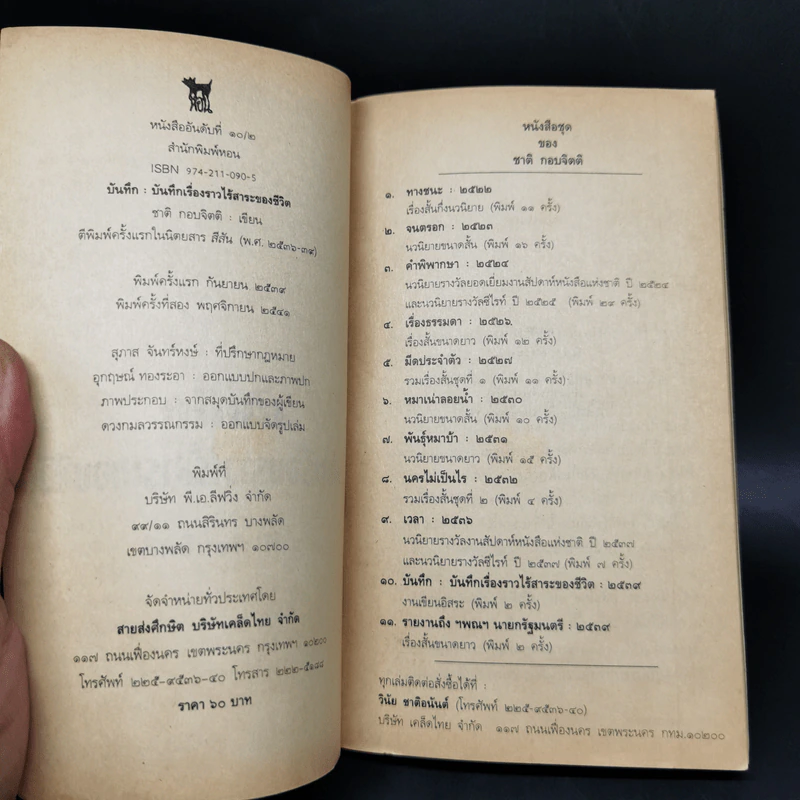 หอน
หนังสืออันดับที่ ๑๐/๒
สำนักพิมพ์หอน
ISBN 974-211-090-5
บันทึก : บันทึกเรื่องราวไร้สาระของชีวิต
ชาติ กอบจิตติ : เขียน
ตีพิมพ์ครั้งแรกในนิตยสาร สีสัน (พ.ศ. ๒๕๓๖-๓๙)
พิมพ์ครั้งแรก กันยายน ๒๕๓๙
พิมพ์ครั้งที่สอง พฤศจิกายน ๒๕๔๑
สุภาส จันทร์หงษ์ : ที่ปรึกษากฎหมาย
อุกฤษณ์ ทองระอา : ออกแบบปกและภาพปก
ภาพประกอบ : จากสมุดบันทึกของผู้เขียน
ดวงกมลวรรณกรรม : ออกแบบจัดรูปเล่ม
พิมพ์ที่
บริษัท พี.เอ.ลีฟวิ่ง จำกัด
๙๙/๑๑ ถนนสิรินทร บางพลัด
เขตบางพลัด กรุงเทพฯ ๑๐๗๐๐
จัดจำหน่ายทั่วประเทศโดย
สายส่งศึกษิต บริษัทเคล็ดไทย จำกัด
๑๑๗ ถนนเฟื่องนคร เขตพระนคร กรุงเทพฯ ๑๐๒๐๐
โทรศัพท์ ๒๒๕-๙๕๓๖-๔๐ โทรสาร ๒๒๒-๕๑๘๘
ราคา ๖๐ บาท
หนังสือชุด
ของ
ชาติ กอบจิตติ
๑. ทางชนะ : ๒๕๒๒
เรื่องสั้นกึ่งนวนิยาย (พิมพ์ ๑๑ ครั้ง)
๒. จนตรอก : ๒๕๒๓
นวนิยายขนาดสั้น (พิมพ์ ๑๖ ครั้ง)
๓. คำพิพากษา : ๒๕๒๔
นวนิยายรางวัลยอดเยี่ยมงานสัปดาห์หนังสือแห่งชาติ ปี ๒๕๒๔
และนวนิยายรางวัลซีไรท์ ปี ๒๕๒๕ (พิมพ์ ๒๙ ครั้ง)
๔. เรื่องธรรมดา : ๒๕๒๖
เรื่องสั้นขนาดยาว (พิมพ์ ๑๒ ครั้ง)
๕. มีดประจำตัว : ๒๕๒๗
รวมเรื่องสั้นชุดที่ ๑ (พิมพ์ ๑๑ ครั้ง)
๖. หมาเน่าลอยน้ำ : ๒๕๓๐
นวนิยายขนาดสั้น (พิมพ์ ๑๐ ครั้ง)
๗. พันธุ์หมาบ้า : ๒๕๓๑
นวนิยายขนาดยาว (พิมพ์ ๑๕ ครั้ง)
๘. นครไม่เป็นไร : ๒๕๓๒
รวมเรื่องสั้นชุดที่ ๒ (พิมพ์ ๔ ครั้ง)
๙. เวลา : ๒๕๓๖
นวนิยายรางวัลงานสัปดาห์หนังสือแห่งชาติ ปี ๒๕๓๗
และนวนิยายรางวัลซีไรท์ ปี ๒๕๓๗ (พิมพ์ ๗ ครั้ง)
๑๐. บันทึก : บันทึกเรื่องราวไร้สาระของชีวิต : ๒๕๓๙
งานเขียนอิสระ (พิมพ์ ๒ ครั้ง)
๑๑. รายงานถึง ฯพณฯ นายกรัฐมนตรี : ๒๕๓๙
เรื่องสั้นขนาดยาว (พิมพ์ ๒ ครั้ง)
ทุกเล่มติดต่อสั่งซื้อได้ที่ :
วินัย ชาติอนันต์ (โทรศัพท์ ๒๒๕-๙๕๓๖-๔๐)
บริษัท เคล็ดไทย จำกัด ๑๑๗ ถนนเฟื่องนคร เขตพระนคร กทม.๑๐๒๐๐